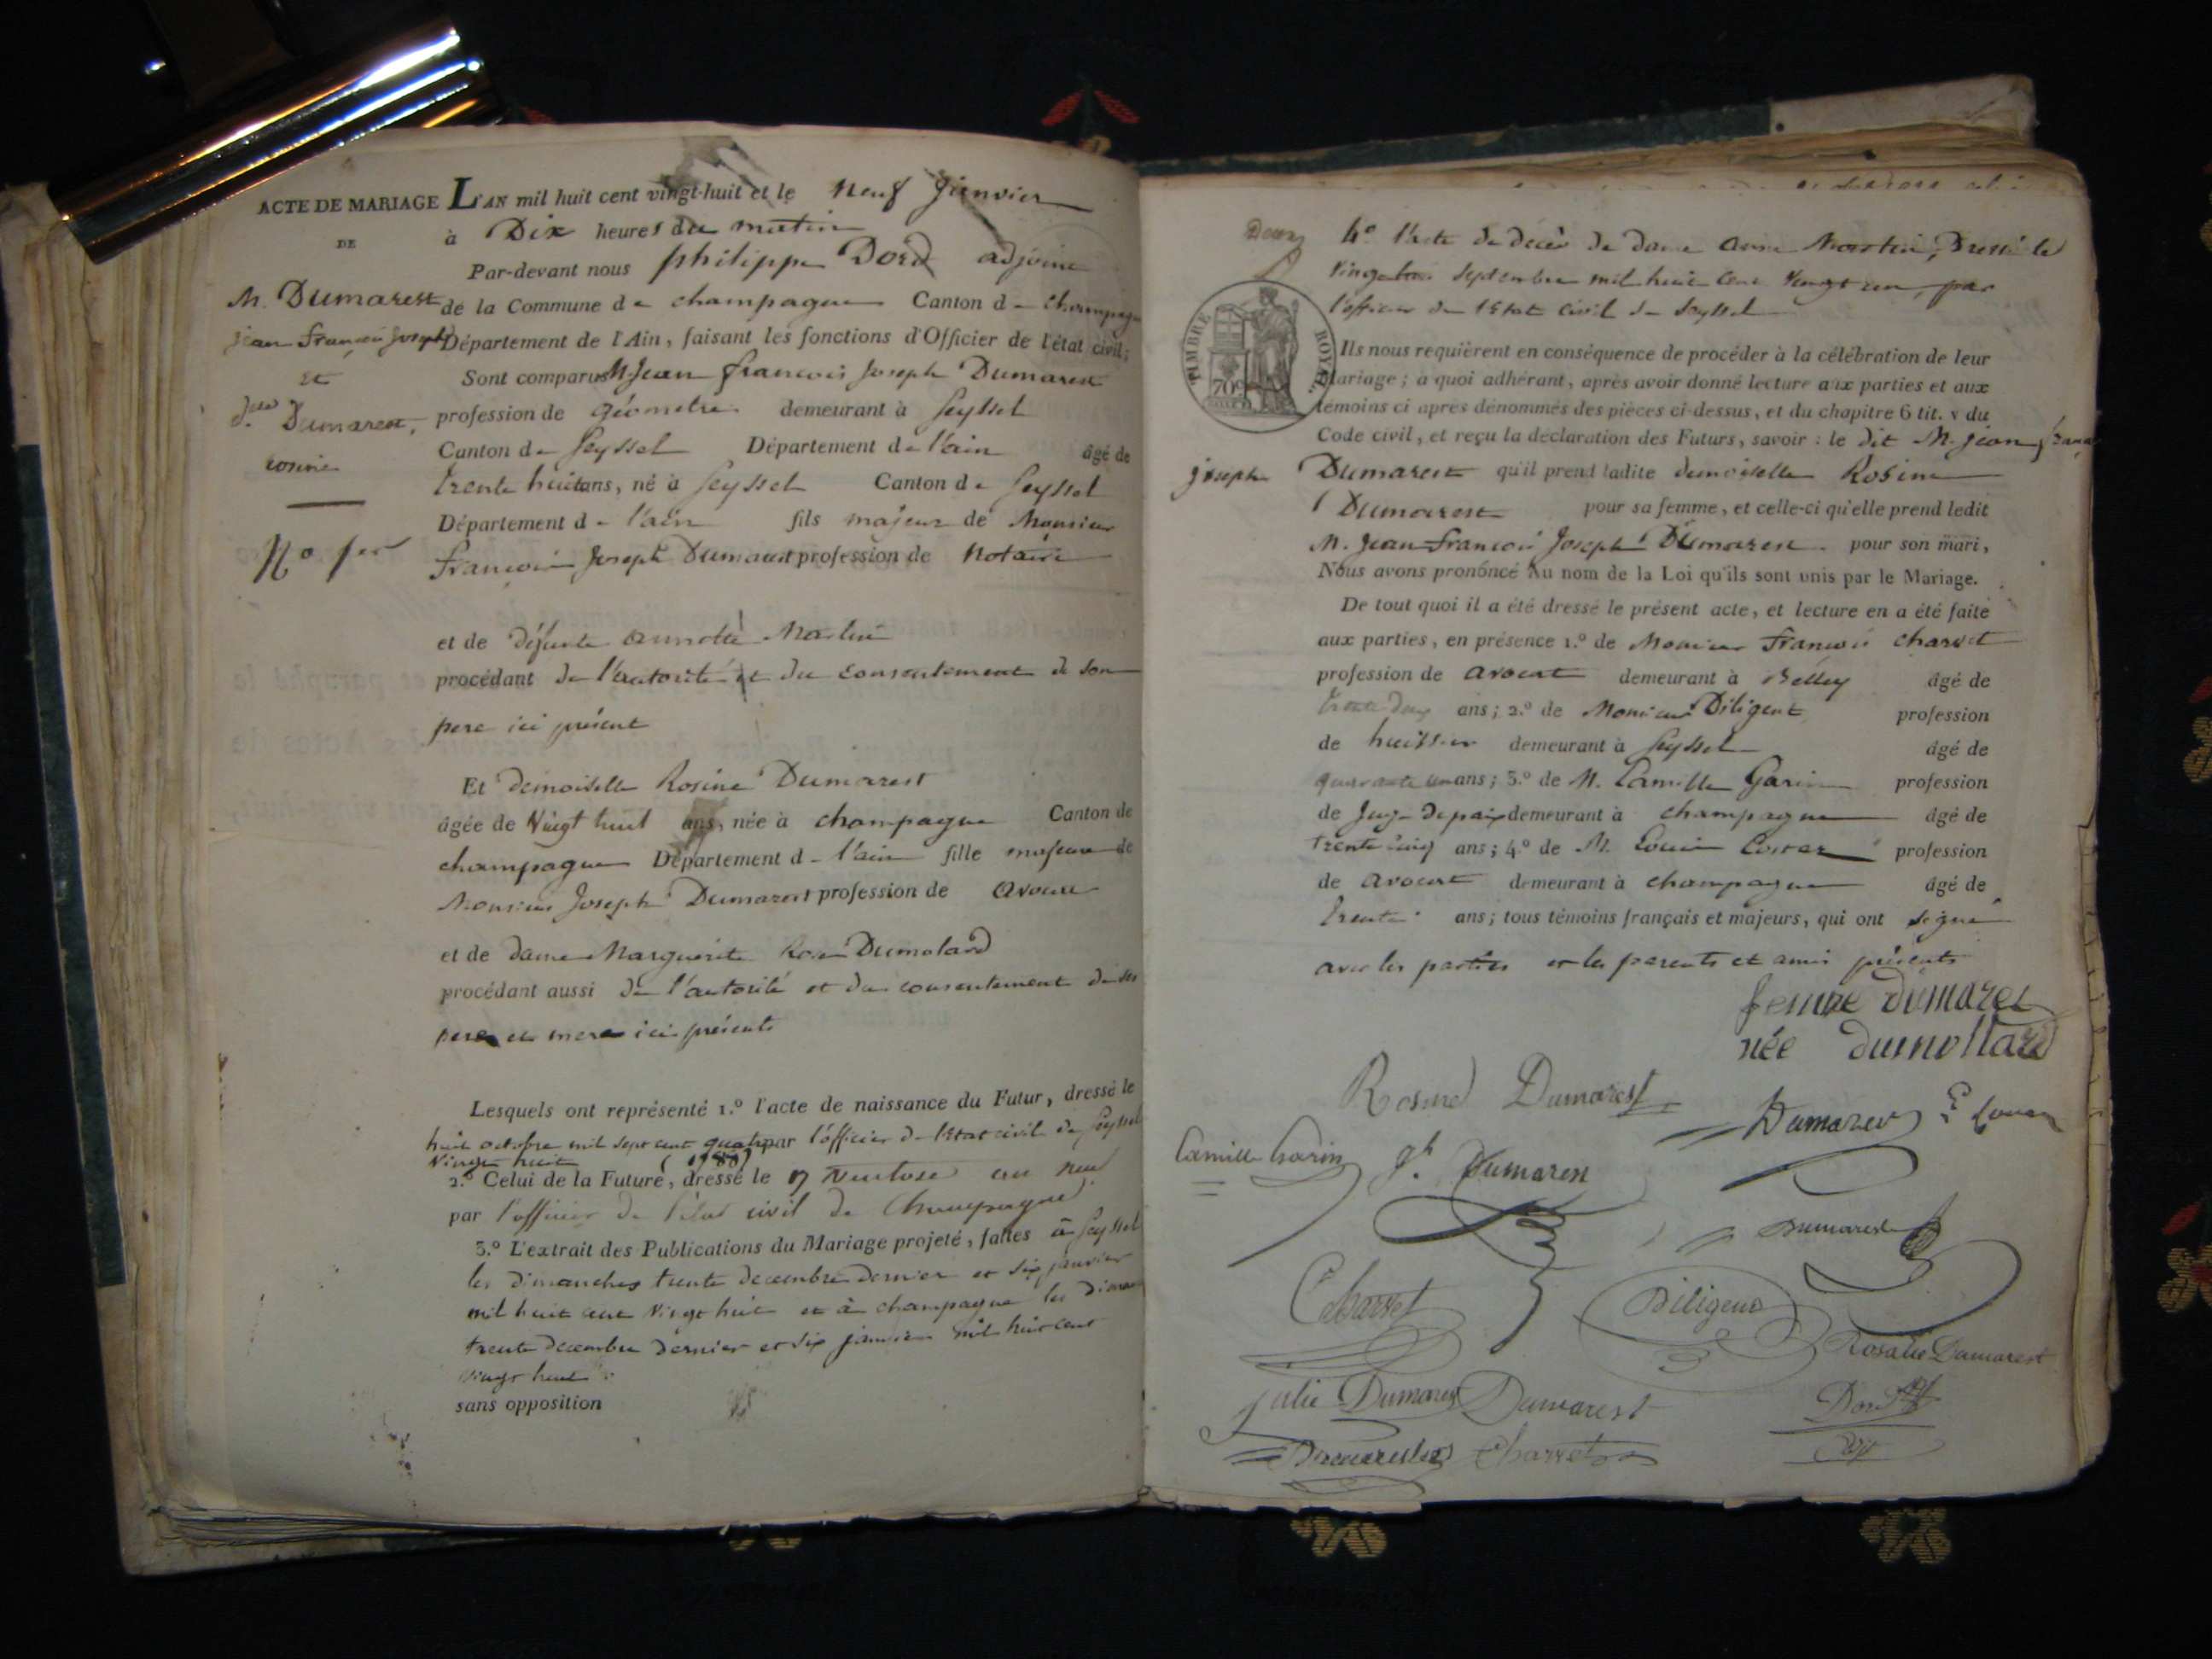 ACTE DE MARIAGE
DE
M. Dumarest
jean françois joseph
et
dlle Dumarest,
rosine
No. 1er
L'AN mil huit cent vingt-huit et le Neuf Janvier
à Dix heures du matin
Par-devant nous philippe Dord adjoint
de la Commune de champagne Canton de Champagne
Département de l'Ain, faisant les fonctions d'Officier de l'état civil;
Sont comparus M. Jean françois Joseph Dumarest
profession de géometre demeurant à Seyssel
Canton de Seyssel Département de l'ain âgé de
trente huit ans, né à Seyssel Canton de Seyssel
Département de l'ain fils majeur de Monsieur
françois Joseph Dumarest profession de Notaire
et de défunte annotte Martin
procédant de l'autorité et du consentement de son
pere ici présent
Et demoiselle Rosine Dumarest
âgée de Vingt huit ans, née à champagne Canton de
champagne Département de l'ain fille majeure de
Monsieur Joseph Dumarest profession de avoué
et de dame Marguerite Rose Dumolard
procédant aussi de l'autorité et du consentement de ses
pere et mere ici présents
Lesquels ont représenté 1.º l'acte de naissance du Futur, dressé le
huit octobre mil sept cent quatre par l'officier de l'Etat civil de Seyssel
Vingt huit (1788)
2.º Celui de la Future, dressé le 17 ventose an neuf
par l'officier de l'état civil de Champagne
3.º L'extrait des Publications du Mariage projeté, faites à Seyssel
les dimanches trente decembre dernier et six janvier
mil huit cent Vingt huit et à champagne les diman
trente decembre dernier et six janvier mil huit cent
vingt huit
sans opposition
Deux
4º l'acte de decès de dame anne Martin, Dressé le
Vingt septembre mil huit cent Vingt un, par
l'officier de l'Etat civil de Seyssel
TIMBRE ROYAL
70c
Ils nous requièrent en conséquence de procéder à la célébration de leur
Mariage; a quoi adhérant, après avoir donné lecture aux parties et aux
témoins ci après dénommés des pièces ci-dessus, et du chapitre 6 tit. v du
Code civil, et reçu la déclaration des Futurs, savoir : le dit M. jean franç
joseph Dumarest qu'il prend ladite demoiselle Rosine
Dumarest pour sa femme, et celle-ci qu'elle prend ledit
M. Jean françois Joseph Dumarest pour son mari,
Nous avons prononcé Au nom de la Loi qu'ils sont unis par le Mariage.
De tout quoi il a été dressé le présent acte, et lecture en a été faite
aux parties, en présence 1.º de Monsieur François charvet
profession de avocat demeurant à Belley âgé de
trente deux ans; 2.º de Monsieur Diligent profession
de huissier demeurant à Seyssel âgé de
quarante un ans; 3.º de M. Camille Garin profession
de Juge de paix demeurant à champagne âgé de
trente cinq ans; 4.º de M. Louis Costaz profession
de avocat demeurant à champagne âgé de
trente ans; tous témoins français et majeurs, qui ont signé
avec les parties et les parents et amis présents
femme dumarest
née dumollard
Rosine Dumarest
Dumarest
Camille Garin
Jh. Dumarest
Dumarest
Charvet
Diligent
Rosalie Dumarest
julie Dumarest
Dumarest
Dord
adjt
Dumarest
Charvet